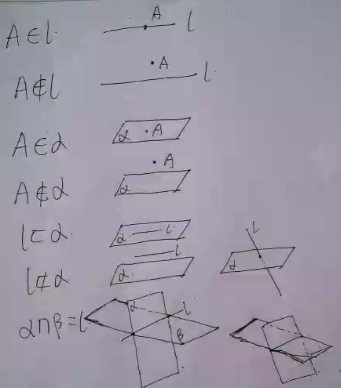 A∈l A l
A∉l A l
A∈α α A
A∉α A α
l⊂α α l
l⊄α l α l α
α∩β=l α l β